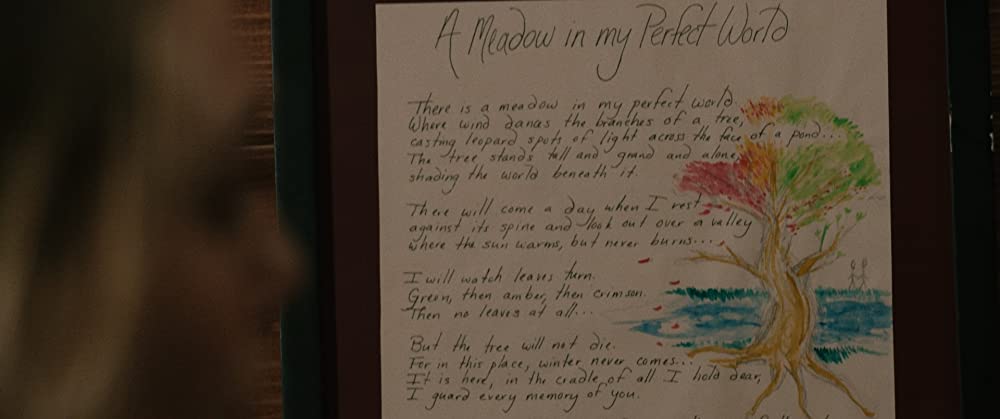 A Meadow in my Perfect World
There is a meadow in my perfect world.
Where wind dances the branches of a tree,
casting leopard spots of light across the face of a pond...
The tree stands tall and grand and alone,
shading the world beneath it.
There will come a day when I rest
against its spine and look out over a valley
where the sun warms, but never burns...
I will watch leaves turn.
Green, then amber, then crimson.
Then no leaves at all...
But the tree will not die.
For in this place, winter never comes...
It is here, in the cradle of all I hold dear,
I guard every memory of you.